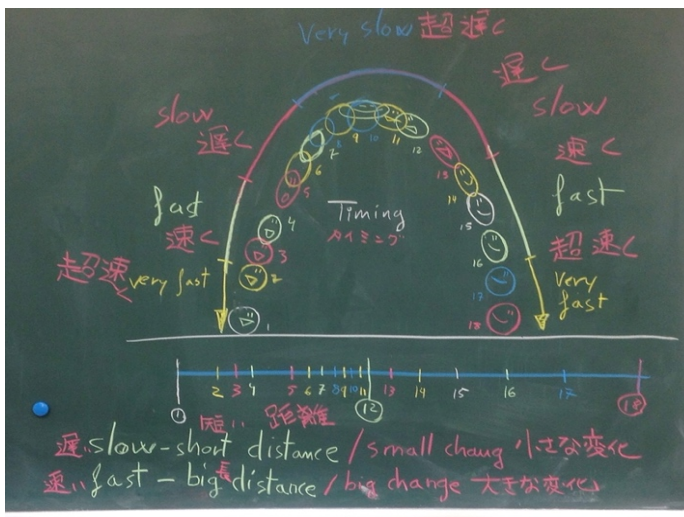 very slow 超遅く
遅く
slow
slow
遅く
速く
fast
fast
速く
超速く
very fast
超速く
very fast
Timing
タイミング
1
2
3
4
5
6
7
8
9
10
11
12
13
14
15
16
17
18
1 2 3 4 5 6 7 8 9 10 11 12 13 14 15 16 17 18
短い 距離
遅い slow-short distance / small chang 小さな変化
速い fast - big 長 distance / big change 大きな変化